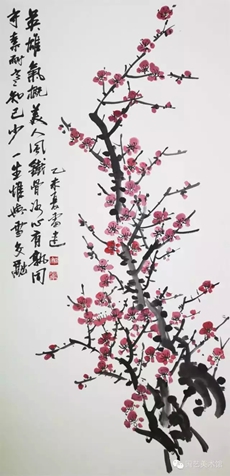 英雄氣概美人風鐵骨冰心有孰同
守素耐寒知己少一生惟與雪交融
乙未夏